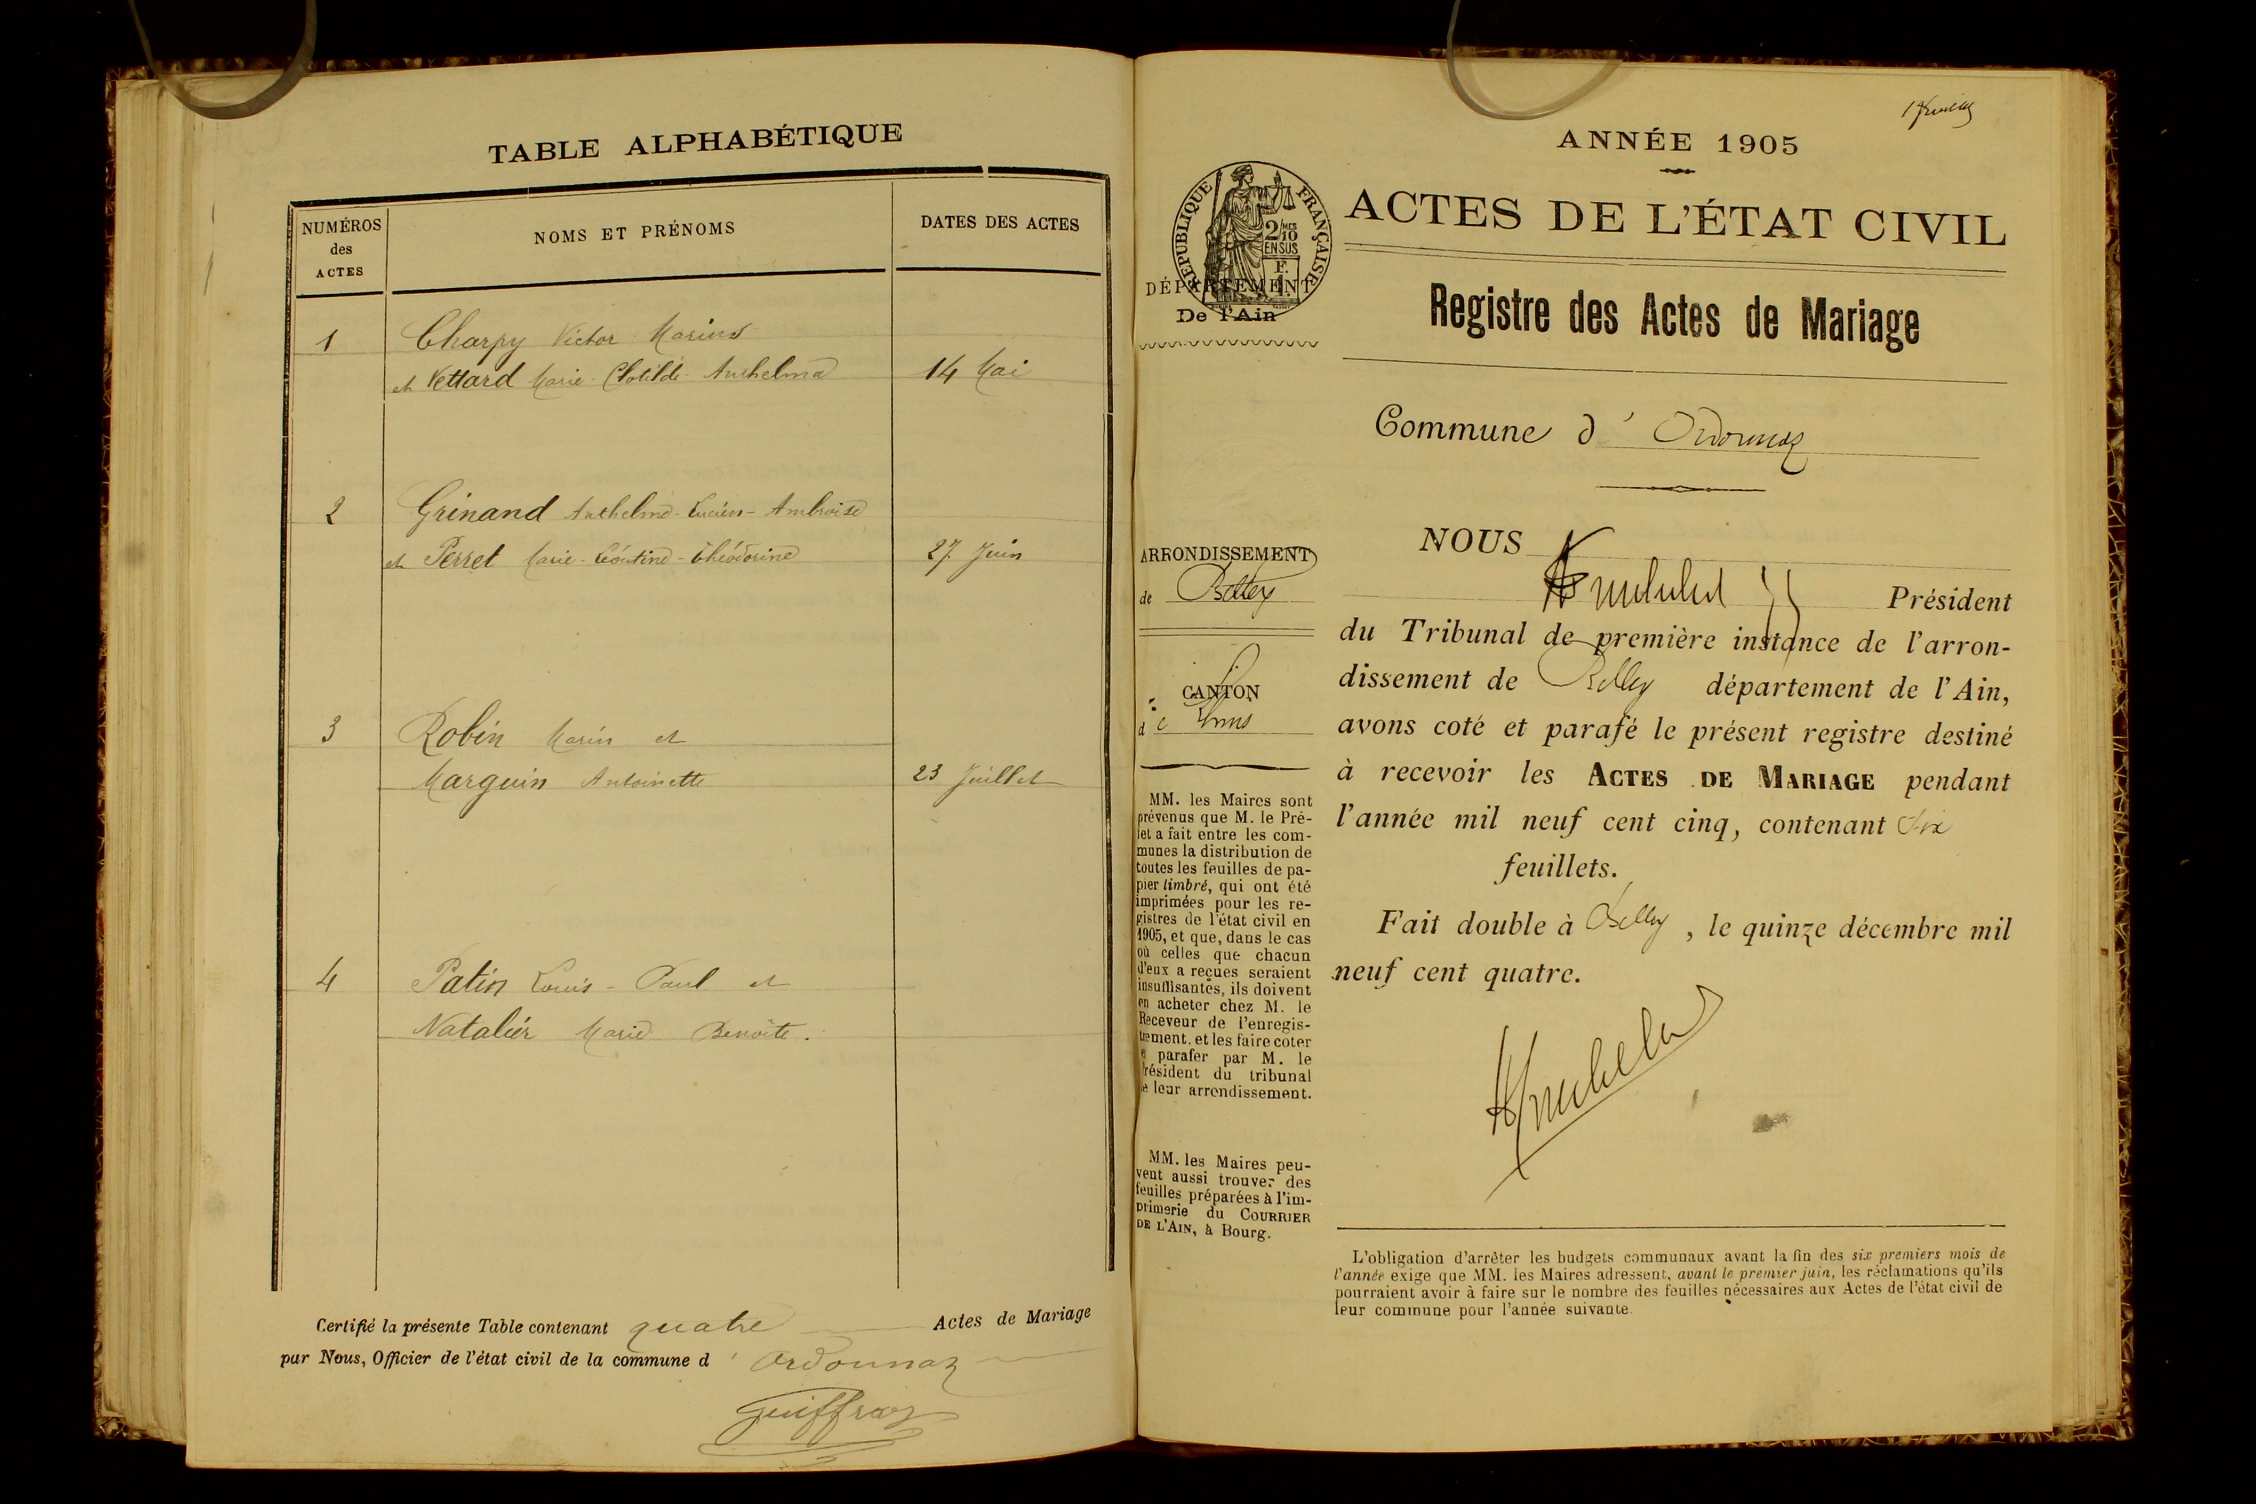 TABLE ALPHABÉTIQUE
NUMÉROS
des
ACTES
NOMS ET PRÉNOMS
DATES DES ACTES
1
Charpy Victor Marius
et Vettard Marie-Clotilde-Anthelma
14 Mai
2
Grinand Anthelme-Lucien-Ambroise
et Perret Marie-Léontine-Théodorine
27 Juin
3
Robin Marin et
Marguin Antoinette
23 Juillet
4
Patin Louis-Paul et
Natalier Marie Benoîte.
Certifié la présente Table contenant quatre Actes de Mariage
par Nous, Officier de l'état civil de la commune d'Ordonnaz
Guiffray
ANNÉE 1905
ACTES DE L'ÉTAT CIVIL
RÉPUBLIQUE FRANÇAISE
2/10
EN SUS
F.
DÉPARTEMENT
De l'Ain
Registre des Actes de Mariage
Commune d'Ordonnaz
ARRONDISSEMENT
de Belley
CANTON
de
MM. les Maires sont
prévenus que M. le Pré-
fet a fait entre les com-
munes la distribution de
toutes les feuilles de pa-
pier timbré, qui ont été
imprimées pour les re-
gistres de l'état civil en
1905, et que, dans le cas
où celles que chacun
d'eux a reçues seraient
insuffisantes, ils doivent
en acheter chez M. le
Receveur de l'enregis-
trement, et les faire coter
et parafer par M. le
Président du tribunal
de leur arrondissement.
MM. les Maires peu-
vent aussi trouver des
feuilles préparées à l'im-
primerie du COURRIER
DE L'AIN, à Bourg.
NOUS
Président
du Tribunal de première instance de l'arron-
dissement de Belley département de l'Ain,
avons coté et parafé le présent registre destiné
à recevoir les ACTES DE MARIAGE pendant
l'année mil neuf cent cinq, contenant six
feuillets.
Fait double à Belley, le quinze décembre mil
neuf cent quatre.
L'obligation d'arrêter les budgets communaux avant la fin des six premiers mois de
l'année exige que MM. les Maires adressent, avant le premier juin, les réclamations qu'ils
pourraient avoir à faire sur le nombre des feuilles nécessaires aux Actes de l'état civil de
leur commune pour l'année suivante.